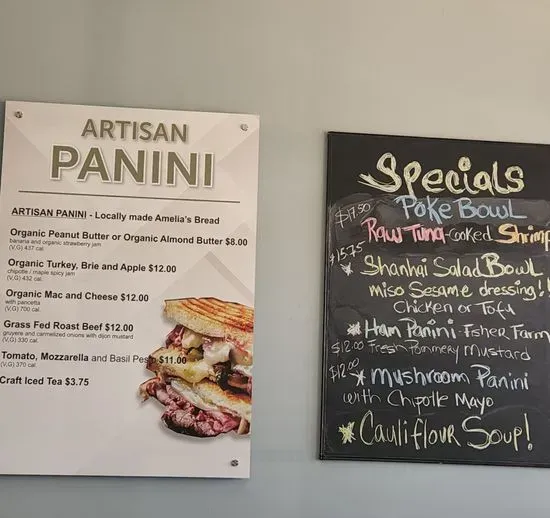 ARTISAN
PANINI
ARTISAN PANINI - Locally made Amelia's Bread
Organic Peanut Butter or Organic Almond Butter $8.00
banana and organic strawberry jam
(V,G) 437 cal.
Organic Turkey, Brie and Apple $12.00
chipotle / maple spicy jam
(V,G) 432 cal.
Organic Mac and Cheese $12.00
with pancetta
(V,G) 700 cal.
Grass Fed Roast Beef $12.00
gruyere and carmelized onions with dijon mustard
(V,G) 330 cal.
Tomato, Mozzarella and Basil Pesto $11.00
(V,G) 370 cal.
Craft Iced Tea $3.75
Specials
$17.50 Poke Bowl
Raw Tuna - Cooked Shrimp
$15.75
* Shanhai Salad Bowl
miso Sesame dressing!!
Chicken or Tofu
* Ham Panini - Fisher Farm
$12.00 Fresh Pommery Mustard
$12.00 * Mushroom Panini
with Chipotle Mayo
* Cauliflour Soup!